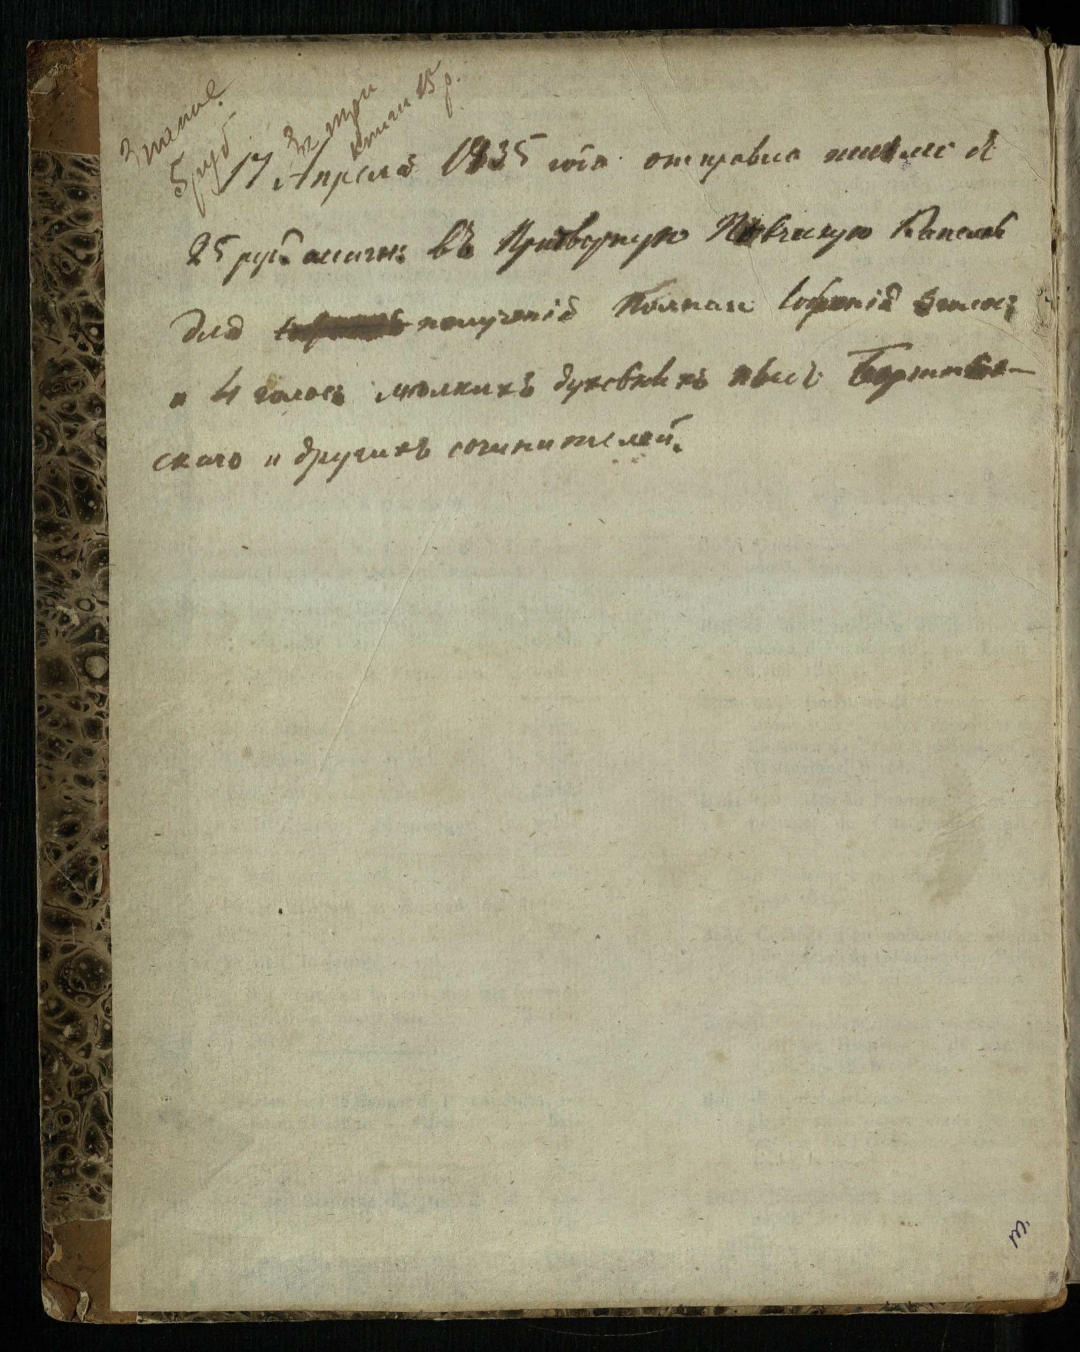 5 руб
За три
книги 15 р.
17 Апреля 1835 года отправил
25 руб. ассигн: въ Придворную Певческую Капель
для получения Полнаго Собрания
и 4 голос: духовныхъ пьесъ Бортнян-
скаго и другихъ сочинителей.